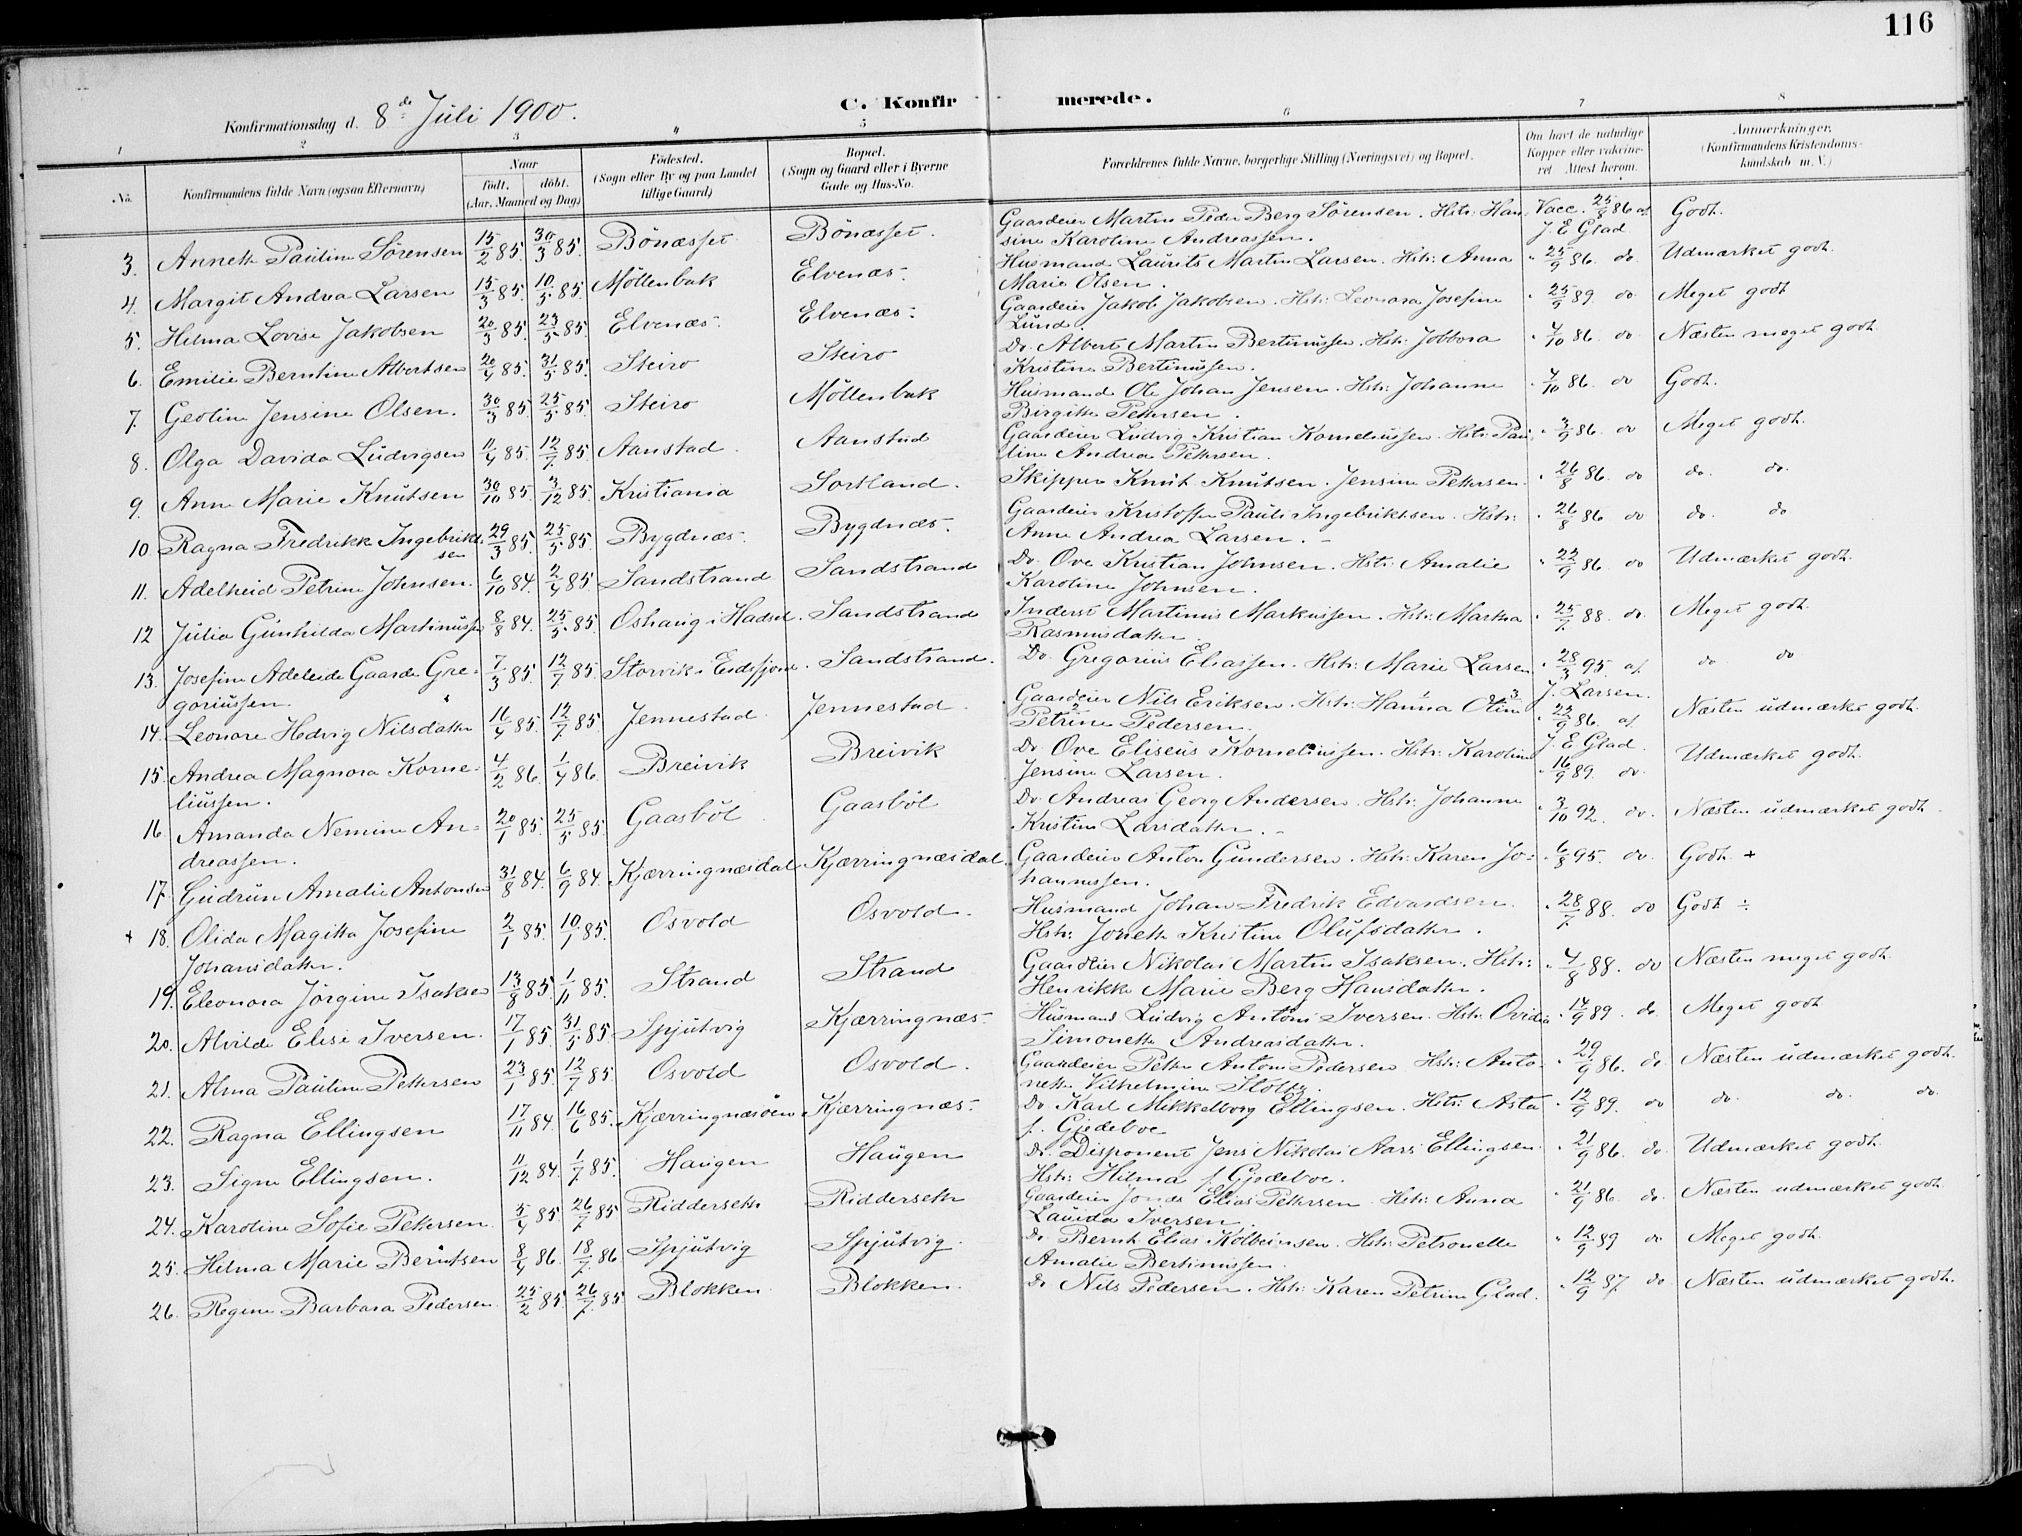 116
C. Konfirmerede.
Konfirmationsdag d. 8de Juli 1900.
1 2 3 4 5 6 7 8
No. Konfirmandens fulde Navn (ogsaa Efternavn) Naar født. døbt. (Aar, Maaned og Dag) Fødested. (Sogn eller By og paa Landet tillige Gaard) Bopæl. (Sogn og Gaard eller i Byerne Gade og Hus-No. Forældrenes fulde Navne, borgerlige Stilling (Næringsvei) og Bopæl. Om havt de naturlige Kopper eller vakcineret Attest herom. Anmærkninger. (Konfirmandens Kristendomskundskab m. V.)
3. Annette Pauline Sørensen 15/2 85. 30/3 85. Bönæsset Bönæsset. Gaardeier Martin Peder Berg Sørensen. Hstr: Han- Vacc. 25/8 86 af Godt.
sine Karoline Andreassen. J. E Glad
4. Margit Andrea Larsen 15/3 85. 10/5 85. Møllenbak Elvenæs. Husmand Laurits Martin Larsen. Hstr: Anna " 25/9 86. do. Udmærket godt.
Marie Olsen.
5. Hilma Lovise Jakobsen 20/3 85. 23/5 85. Elvenæs. Elvenæs. Gaardeier Jakob Jakobsen. Hstr: Leonora Josefine " 25/9 89 do Meget godt
Lund.
6. Emilie Berntine Albertsen 20/4 85. 31/5 85. Steiro Steiro Do. Albert Martin Bertinussen. Hstr: Jobbora " 7/10 86. do Næsten meget godt.
Kristine Bertinussen.
7. Geoline Jensine Olsen. 30/3 85 25/5 85. Steiro Møllenbak Husmand Ole Johan Jensen. Hstr: Johanne " 7/10 86. do Godt.
Birgitte Pettersen.
8. Olga Davida Ludvigsen 11/4 85. 12/7 85. Aanstad. Aanstad Gaardeier Ludvig Kristian Korneliussen. Hstr: Pau- " 3/9 86. do Meget godt.
line Andrea Pettersen.
9. Anna Marie Knutsen 30/10 85. 3/12 85. Kristiania Sortland. Skipper Knut Knutsen. Jensine Pettersen. " 26/8 86. do do. do.
10. Ragna Fredrikke Ingebrikt- 29/3 85. 25/5 85. Bygdnæs. Bygdnæs. Gaardeier Kristoffer Pauli Ingebriktsen. Hstr: " 26/8 86 do do. do
sen Anne Andrea Larsen.
11. Adelheid Petrine Johnsen. 6/10 84. 2/4 85. Sandstrand Sandstrand Do. Ove Kristian Johnsen. Hstr: Amalie " 22/9 86 do Udmærket godt.
Karoline Johnsen.
12 Julia Gunhilda Martinussen 8/8 84. 25/5 85. Oshaug i Hadsel. Sandstrand Inderst Martinus Markussen. Hstr: Markea " 25/7 88. do. Meget godt.
Rasmusdatter.
13. Josefine Adeleide Gaarde Gre- 7/3 85. 12/7 85. Storvik i Eidsfjord. Sandstrand. Do. Gregorius Eliassen. Hstr: Marie Larsen " 28/3 95. af do do
goriussen. J. Larsen.
14. Leonore Hedvig Nilsdatter 16/4 85. 12/7 85. Jennestad. Jennestad. Gaardeier Nils Eriksen. Hstr: Hanna Oline " 25/9 86. af Næsten udmærket godt.
Petrine Pedersen. J. E Glad.
15. Andrea Magnora Korne- 4/2 86. 1/4 86. Breivik Breivik Do Ove Eliseus Korneliussen. Hstr: Karoline " 16/9 89. do. Udmærket godt.
liussen. Jensine Larsen.
16. Amanda Nemine An- 20/1 85. 25/5 85. Gaasböl Gaasböl Do Andreas Georg Andersen. Hstr: Johanne " 3/10 92. do. Næsten udmærket godt.
dreassen. Kristine Larsdatter.
17. Gudrun Amalie Antonsen 31/8 84. 6/9 84. Kjærringnæsdal Kjærringnæsdal. Gaardeier Anton Gundersen. Hstr: Karen Jo- " 6/8 95. do. Godt +
hannessen.
+ 18. Olida Magitta Josefine 2/1 85. 10/1 85. Osvold Osvold. Husmand Johan Fredrik Edvardsen. " 28/7 88. do Godt ÷
Johansdatter. Hstr: Jonette Kristine Olufsdatter.
19. Eleonora Jørgine Isaksen 13/8 85. 1/11 85. Strand Strand Gaardeier Nikolai Martin Isaksen. Hstr: " 4/8 88. do Næsten meget godt.
Henrikke Marie Berg Hansdatter.
20. Alvilde Elise Iversen. 17/1 85. 31/5 85. Spjutvig Kjærringnæs. Husmand Ludvig Antoni Iversen. Hstr: Ovidia " 14/9 89. do. Meget godt
Simonette Andreasdatter.
21. Alma Pauline Pettersen 23/1 85. 12/7 85. Osvold Osvold. Gaardeier Petter Anton Pedersen Hstr: Anto- " 29/9 86. do. Næsten udmærket godt.
nette Vilhelmine Stolt.
22. Ragna Ellingsen 17/11 84. 16/6 85. Kjærringnæsöen Kjærringnæs. Do Karl Mikkelborg Ellingsen. Hstr: Asta " 12/9 89. do do. do. do.
f. Gjedeboe
23. Signe Ellingsen. 11/12 84. 1/7 85. Haugen Haugen Do. Disponent Jens Nikolai Aars Ellingsen. " 21/9 86. do. Udmærket godt.
Hstr: Hilma f. Gjedeboe.
24. Karoline Sofie Pettersen. 5/4 85. 26/7 85. Riddersette Riddersette Gaardeier Jonas Elias Pettersen. Hstr: Anna " 21/9 86. do. Næsten udmærket godt.
Lauida Iversen.
25. Hilma Marie Berntsen 8/4 86. 18/7 86. Spjutvig Spjutvig. Do Bernt Elias Kolbeinsen. Hstr: Petronelle " 12/9 89 do Meget godt.
Amalie Bertinussen.
26. Regine Barbara Pedersen. 25/2 85. 26/7 85 Blokken. Blokken. Do Nils Pedersen. Hstr: Karen Petrine Glad. " 12/9 87. do Næsten udmærket godt.